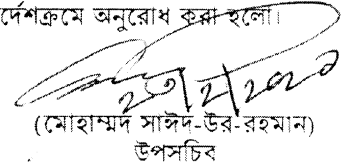 র্দেশক্রমে অনুরোধ করা হলো।
(মোহাম্মদ সাঈদ-উর-রহমান)
উপসচিব